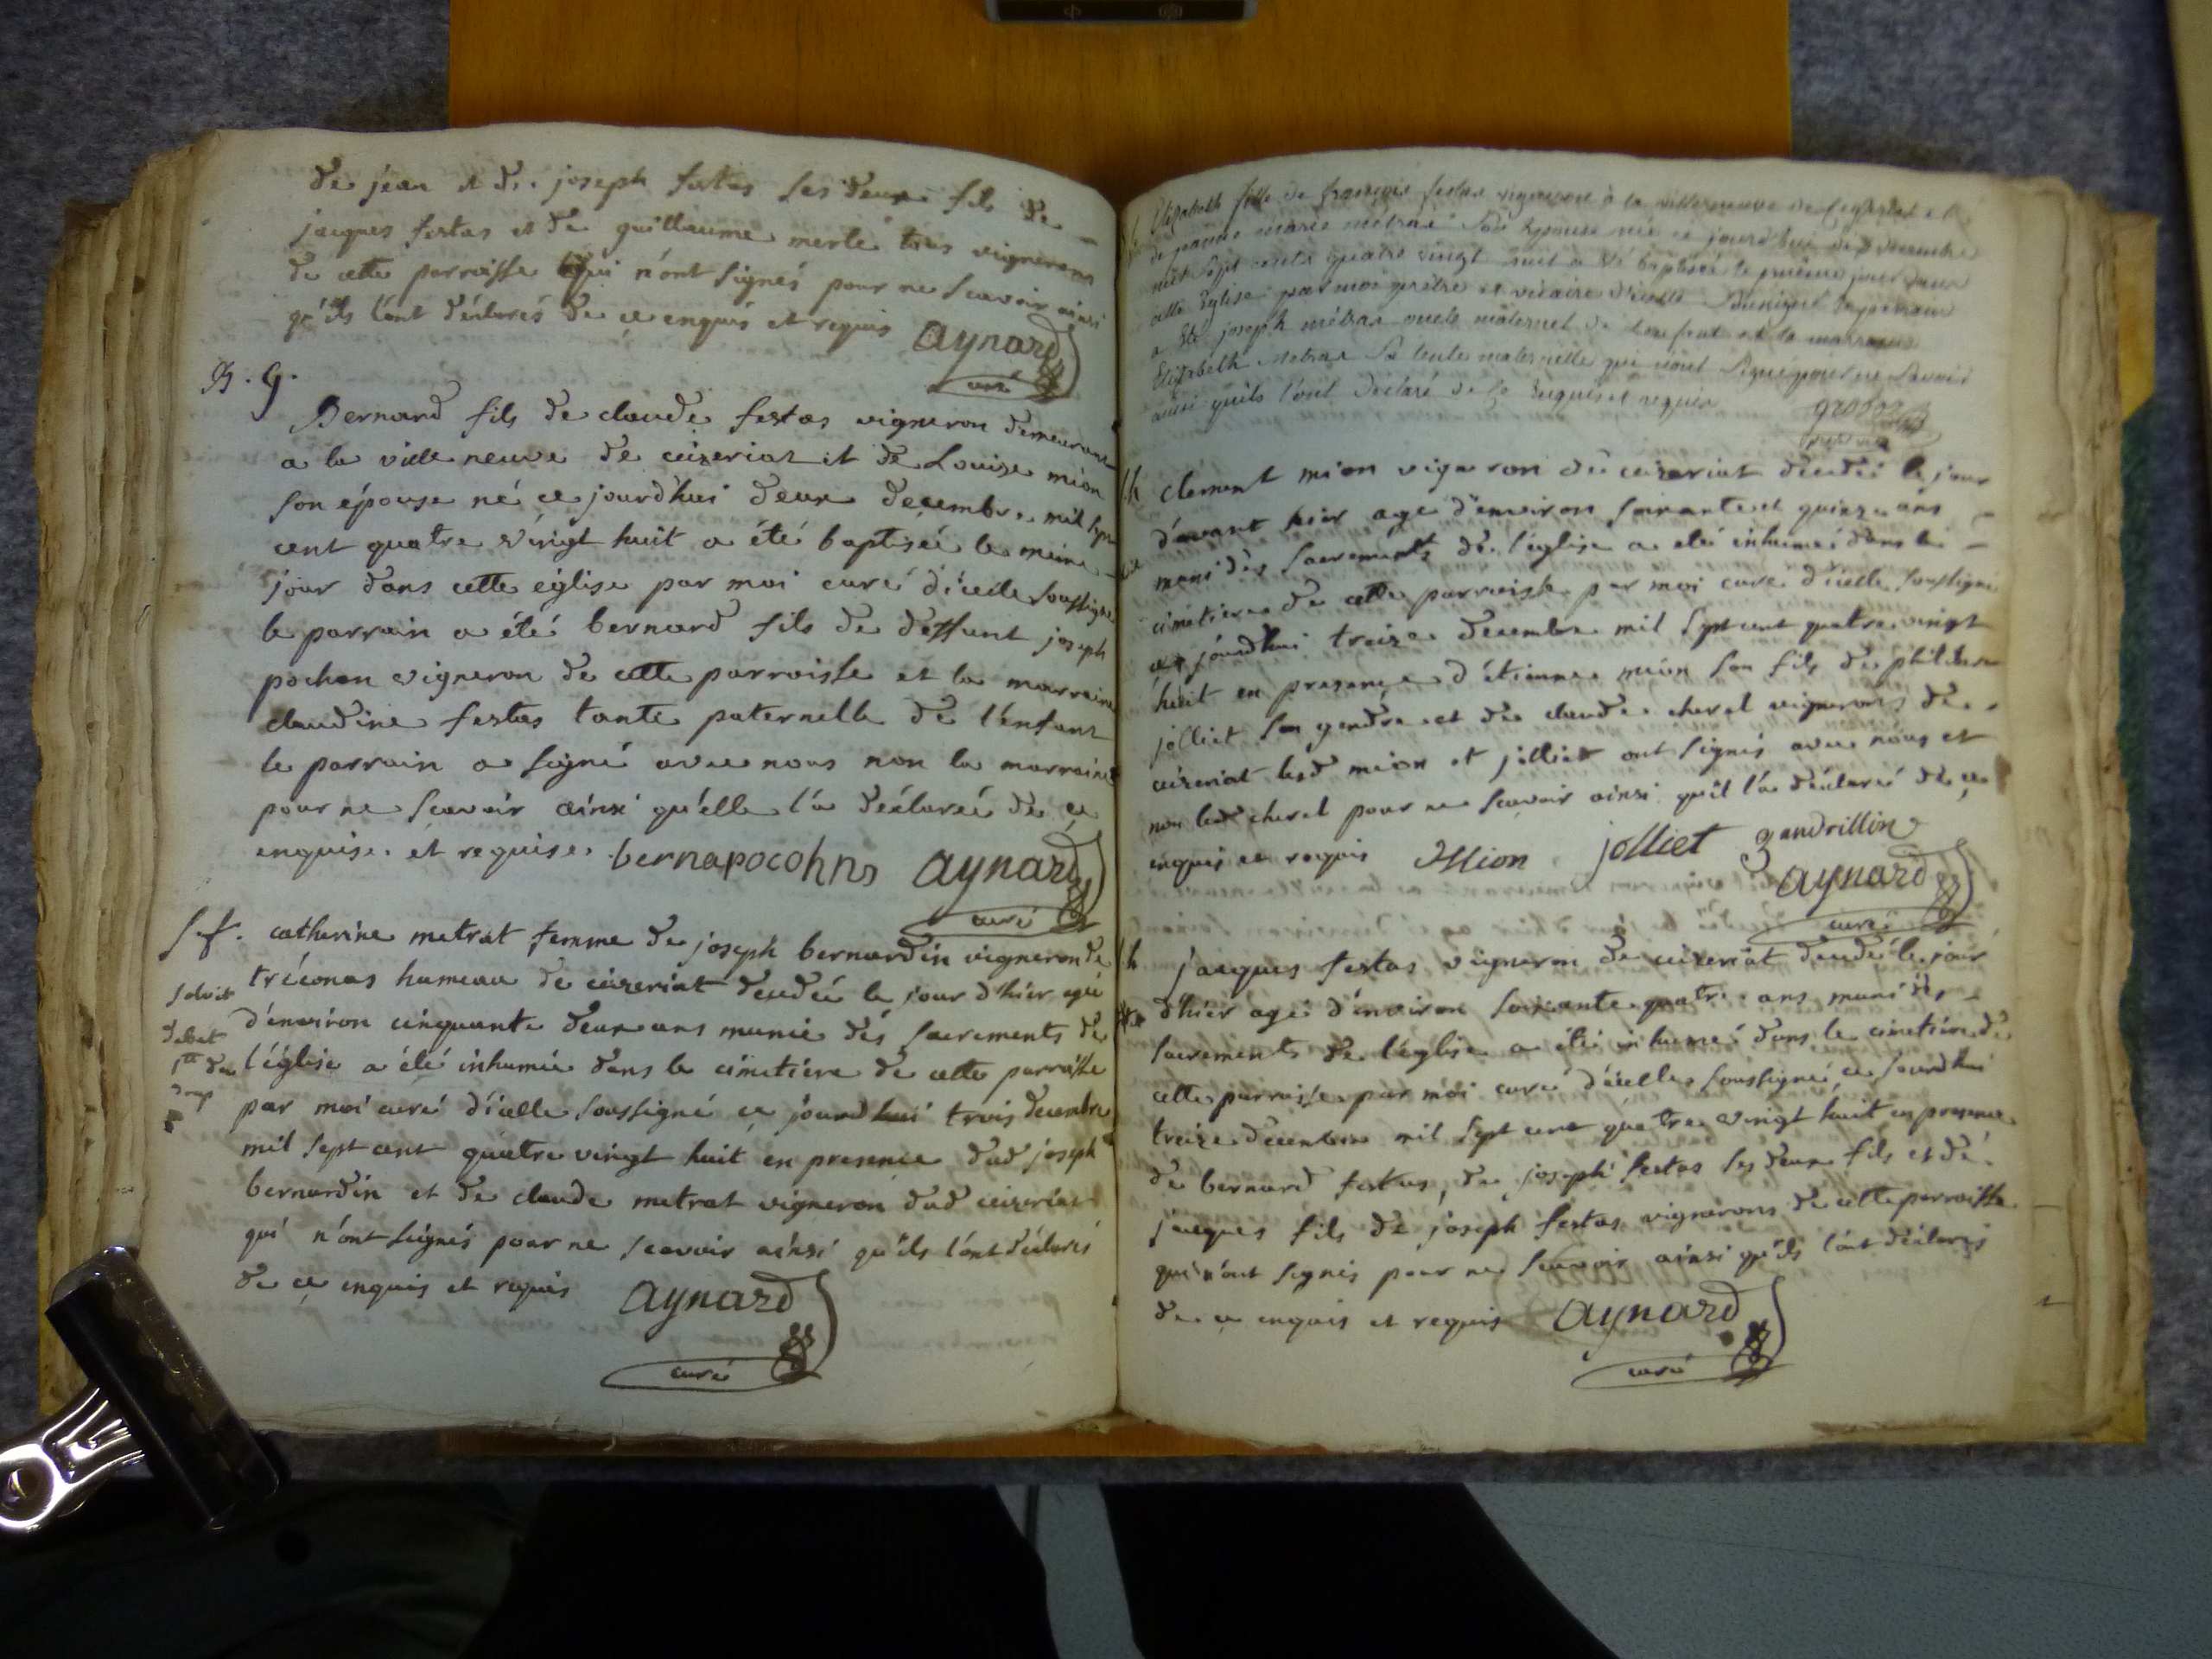 de jean et de joseph festas ses deux fils de
jacques festas et de guillaume merle tous vignerons
de cette parroisse qui n'ont signés pour ne scavoir ainsi
qu'ils l'ont déclarés de ce enquis et requis Aynard
curé
B. g.
Bernard fils de claude festas vigneron demeurant
a la ville neuve de ceizeriat et de Louise mion
son épouse né ce jourd'hui deux decembre mil sept
cent quatre vingt huit a été baptiseé le meme
jour dans cette église par moi curé d'icelle soussigné
le parrain a été bernard fils de deffunt joseph
pochon vigneron de cette parroisse et la marraine
claudine festas tante paternelle de l'enfant
le parrain a signé avec nous non la marraine
pour ne scavoir ainsi qu'elle l'a déclareé de ce
enquise et requise bernapocohns Aynard
curé
S. f. catherine metrat femme de joseph bernardin vigneron de
tréconas hameau de ceizeriat decedeé le jour d'hier ageé
solvit
d'environ cinquante deux ans munie des sacrements de
debet
l'église a été inhumée dans le cimetiere de cette parroisse
drap
par moi curé d'icelle soussigné ce jourd'hui trois decembre
mil sept cent quatre vingt huit en presence dud joseph
bernardin et de claude metrat vigneron dud ceizeriat
qui n'ont signés pour ne scavoir ainsi qu'ils l'ont déclarés
de ce enquis et requis Aynard
curé
Elizabeth fille de françois festas vigneron à la villeneuve de Ceyzeriat et
de jeanne marie métras son Epouse née ce jourd'hui decembre
mil sept cents quatre vingt huit a été baptiseé le même jour dans
cette Eglise par moi prêtre et vicaire d'icelle soussigné le parrain
a Eté joseph métras oncle maternel de l'enfant et la marraine
Elizabeth Metras sa tante maternelle qui n'ont signé pour ne savoir
ainsi qu'ils l'ont déclaré de ce Enquis et requis
clement mion vigneron de ceizeriat decedé le jour
d'avant hier agé d'environ soixante et quinze ans
muni des sacrements de l'église a été inhumé dans le
cimetiere de cette parroisse par moi curé d'icelle soussigné
ce jourdhui treize decembre mil sept cent quatre vingt
huit en presence d'étienne mion son fils de philibert
jolliet son gendre et de claude cheval vignerons de
ceizeriat lesd mion et jolliet ont signés avec nous et
non led cheval pour ne scavoir ainsi qu'il l'a déclaré de ce
enquis et requis Mion jolliet gandrillin
Aynard
curé
S. h jacques festas vigneron de ceizeriat decedé le jour
d'hier agé d'environ soixante quatre ans muni des
sacrements de l'église a été inhumé dans le cimetiere de
cette parroisse par moi curé d'icelle soussigné ce jourdhui
treize decembre mil sept cent quatre vingt huit en presence
de bernard festas, de joseph festas ses deux fils et de
jacques fils de joseph festas vignerons de cette parroisse
qui n'ont signés pour ne scavoir ainsi qu'ils l'ont déclarés
de ce enquis et requis Aynard
curé